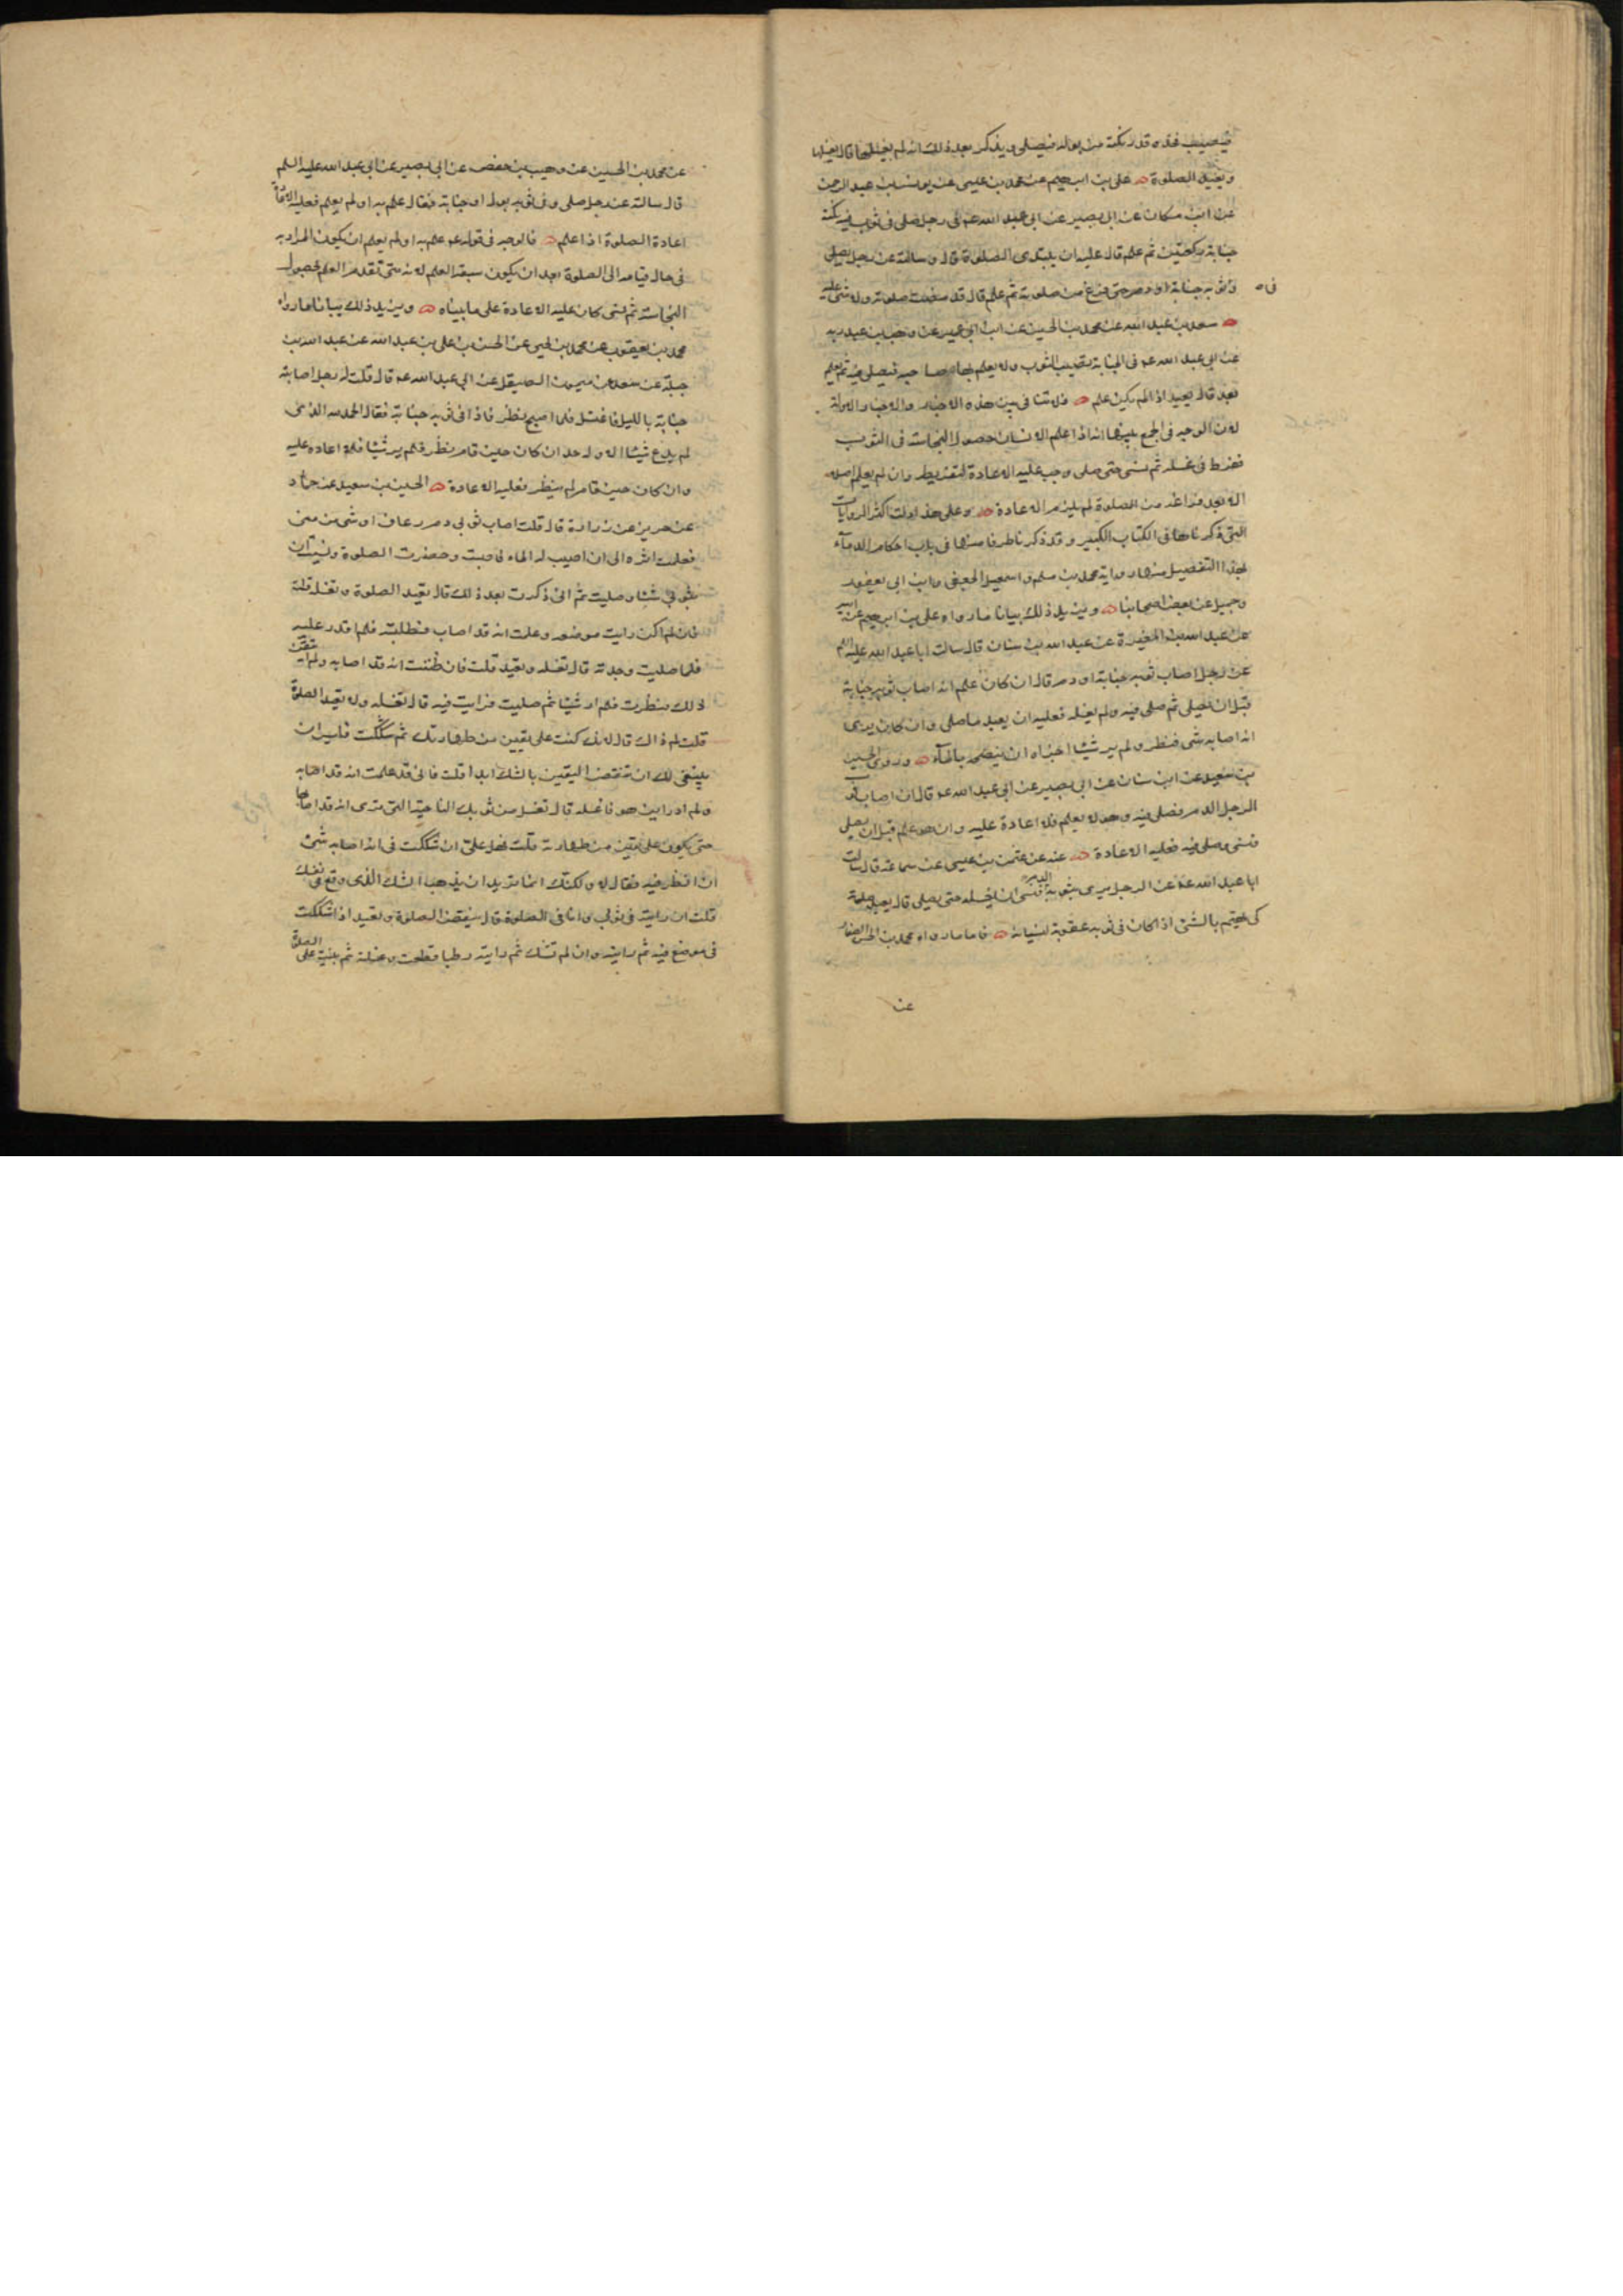 فيصيب فخذه قدر نكتة من بوله فيصلي ويذكر بعد ذلك انه لم يغسلها قال يغسلها
ويعيد الصلوة علي بن ابرهيم عن محمد بن عيسى عن يونس بن عبد الرحمن
عن ابن مسكان عن ابي بصير عن ابي عبد الله عم في رجل صلى في ثوب فيه نكتة
جنابة ركعتين ثم علم قال عليه ان يبتدى الصلوة قال وسالته عن رجل يصلي
وفي ثوبه جنابة او دم حتى فرغ من صلوته ثم علم قال قد مضت صلوته ولا شى عليه
سعد بن عبد الله عن محمد بن الحسين عن ابن ابي عمير عن وهب بن عبد ربه
عن ابي عبد الله عم في الجنابة تصيب الثوب ولا يعلم بها صاحبه فيصلي فيه ثم يعلم
بعد قال يعيد اذا لم يكن علم فلا تنافي بين هذه الاخبار والاخبار الاولة
لان الوجه في الجمع بينها انه اذا علم الانسان حصول النجاسة في الثوب
ففرط في غسله ثم نسى حتى صلى وجب عليه الاعادة لتفريطه وان لم يعلم اصلا
الا بعد فراغه من الصلوة لم يلزمه الاعادة وعلى هذا دلت اكثر الروايات
التي ذكرناها في الكتاب الكبير وقد ذكرنا طرفا منها في باب احكام الدمآء
بهذا التفصيل منها رواية محمد بن مسلم واسمعيل الجعفي وابن ابي يعفور
وجميل عن بعض اصحابنا ويزيد ذلك بيانا ما رواه علي بن ابرهيم عن ابيه
عن عبد الله بن المغيرة عن عبد الله بن سنان قال سالت ابا عبد الله عليه السلم
عن رجل اصاب ثوبه جنابة او دم قال ان كان علم انه اصاب ثوبه جنابة
قبل ان يصلي ثم صلى فيه ولم يغسله فعليه ان يعيد ما صلى وان كان يرى
انه اصابه شى فنظر ولم ير شيئا اجزاه ان ينضحه بالمآء وروى الحسين
بن سعيد عن ابن سنان عن ابي بصير عن ابي عبد الله عم قال ان اصاب ثوب
الرجل الدم فصلى فيه وهو لا يعلم فلا اعادة عليه وان هو علم قبل ان يصلي
فنسى وصلى فيه فعليه الاعادة عنه عن عثمن بن عيسى عن سماعة قال سالت
ابا عبد الله عم عن الرجل يرى بثوبه الدم فنسى ان يغسله حتى يصلي قال يعيد صلوته
كى يهتم بالشئ اذا كان في ثوبه عقوبة لنسيانه فاما ما رواه محمد بن الحسن الصفار
عن
عن محمد بن الحسين عن وهيب بن حفص عن ابي بصير عن ابي عبد الله عليه السلم
قال سالته عن رجل صلى وفي ثوبه بول او جنابة فقال علم به او لم يعلم فعليه الاعادة
اعادة الصلوة اذا علم فالوجه في قوله عم علم به او لم يعلم ان يكون المراد به
في حال قيامه الى الصلوة بعد ان يكون سبقه العلم لانه متى تقدم العلم بحصول
النجاسة ثم نسى كان عليه الاعادة على ما بيناه ويزيد ذلك بيانا ما رواه
محمد بن يعقوب عن محمد بن يحيى عن الحسن بن علي بن عبد الله عن عبد الله بن
جبلة عن سعد عن ميمون الصيقل عن ابي عبد الله عم قال قلت له رجل اصابته
جنابة بالليل فاغتسل فلما اصبح نظر فاذا في ثوبه جنابة فقال الحمد لله الذى
لم يدع شيئا الا وله حد ان كان حين قام نظر فلم ير شيئا فلا اعاده عليه
وان كان حين قام لم ينظر فعليه الاعادة الحسين بن سعيد عن حماد
عن حريز عن زرارة قال قلت اصاب ثوبي دم رعاف او شى من منى
فعلمت اثره الى ان اصيب له الماء فاصبت وحضرت الصلوة ونسيت ان
بثوبي شيئا وصليت ثم اني ذكرت بعد ذلك قال تعيد الصلوة وتغسله قلت
فان لم اكن رايت موضعه وعلمت انه قد اصابه فطلبته فلم اقدر عليه
فلما صليت وجدته قال تغسله وتعيد قلت فان ظننت انه قد اصابه ولم اتيقن
ذلك فنظرت فلم ار شيئا ثم صليت فرايت فيه قال تغسله ولا تعيد الصلوة
قلت لم ذاك قال لانك كنت على يقين من طهارتك ثم شككت فليس
ينبغي لك ان تنقض اليقين بالشك ابدا قلت فاني قد علمت انه قد اصابه
ولم ادر اين هو فاغسله قال تغسل من ثوبك الناحية التي ترى انه قد اصابها
حتى يكون على يقين من طهارته قلت فهل علي ان شككت في انه اصابه شئ
ان انظر فيه فقال لا ولكنك انما تريد ان يذهب الشك الذى وقع في نفسك
قلت ان رايته في ثوبي وانا في الصلوة قال ينقض الصلوة وتعيد اذا شككت
في موضع فيه ثم رايته وان لم تشك ثم رايته رطبا قطعت وغسلته ثم بنيت على الصلوة